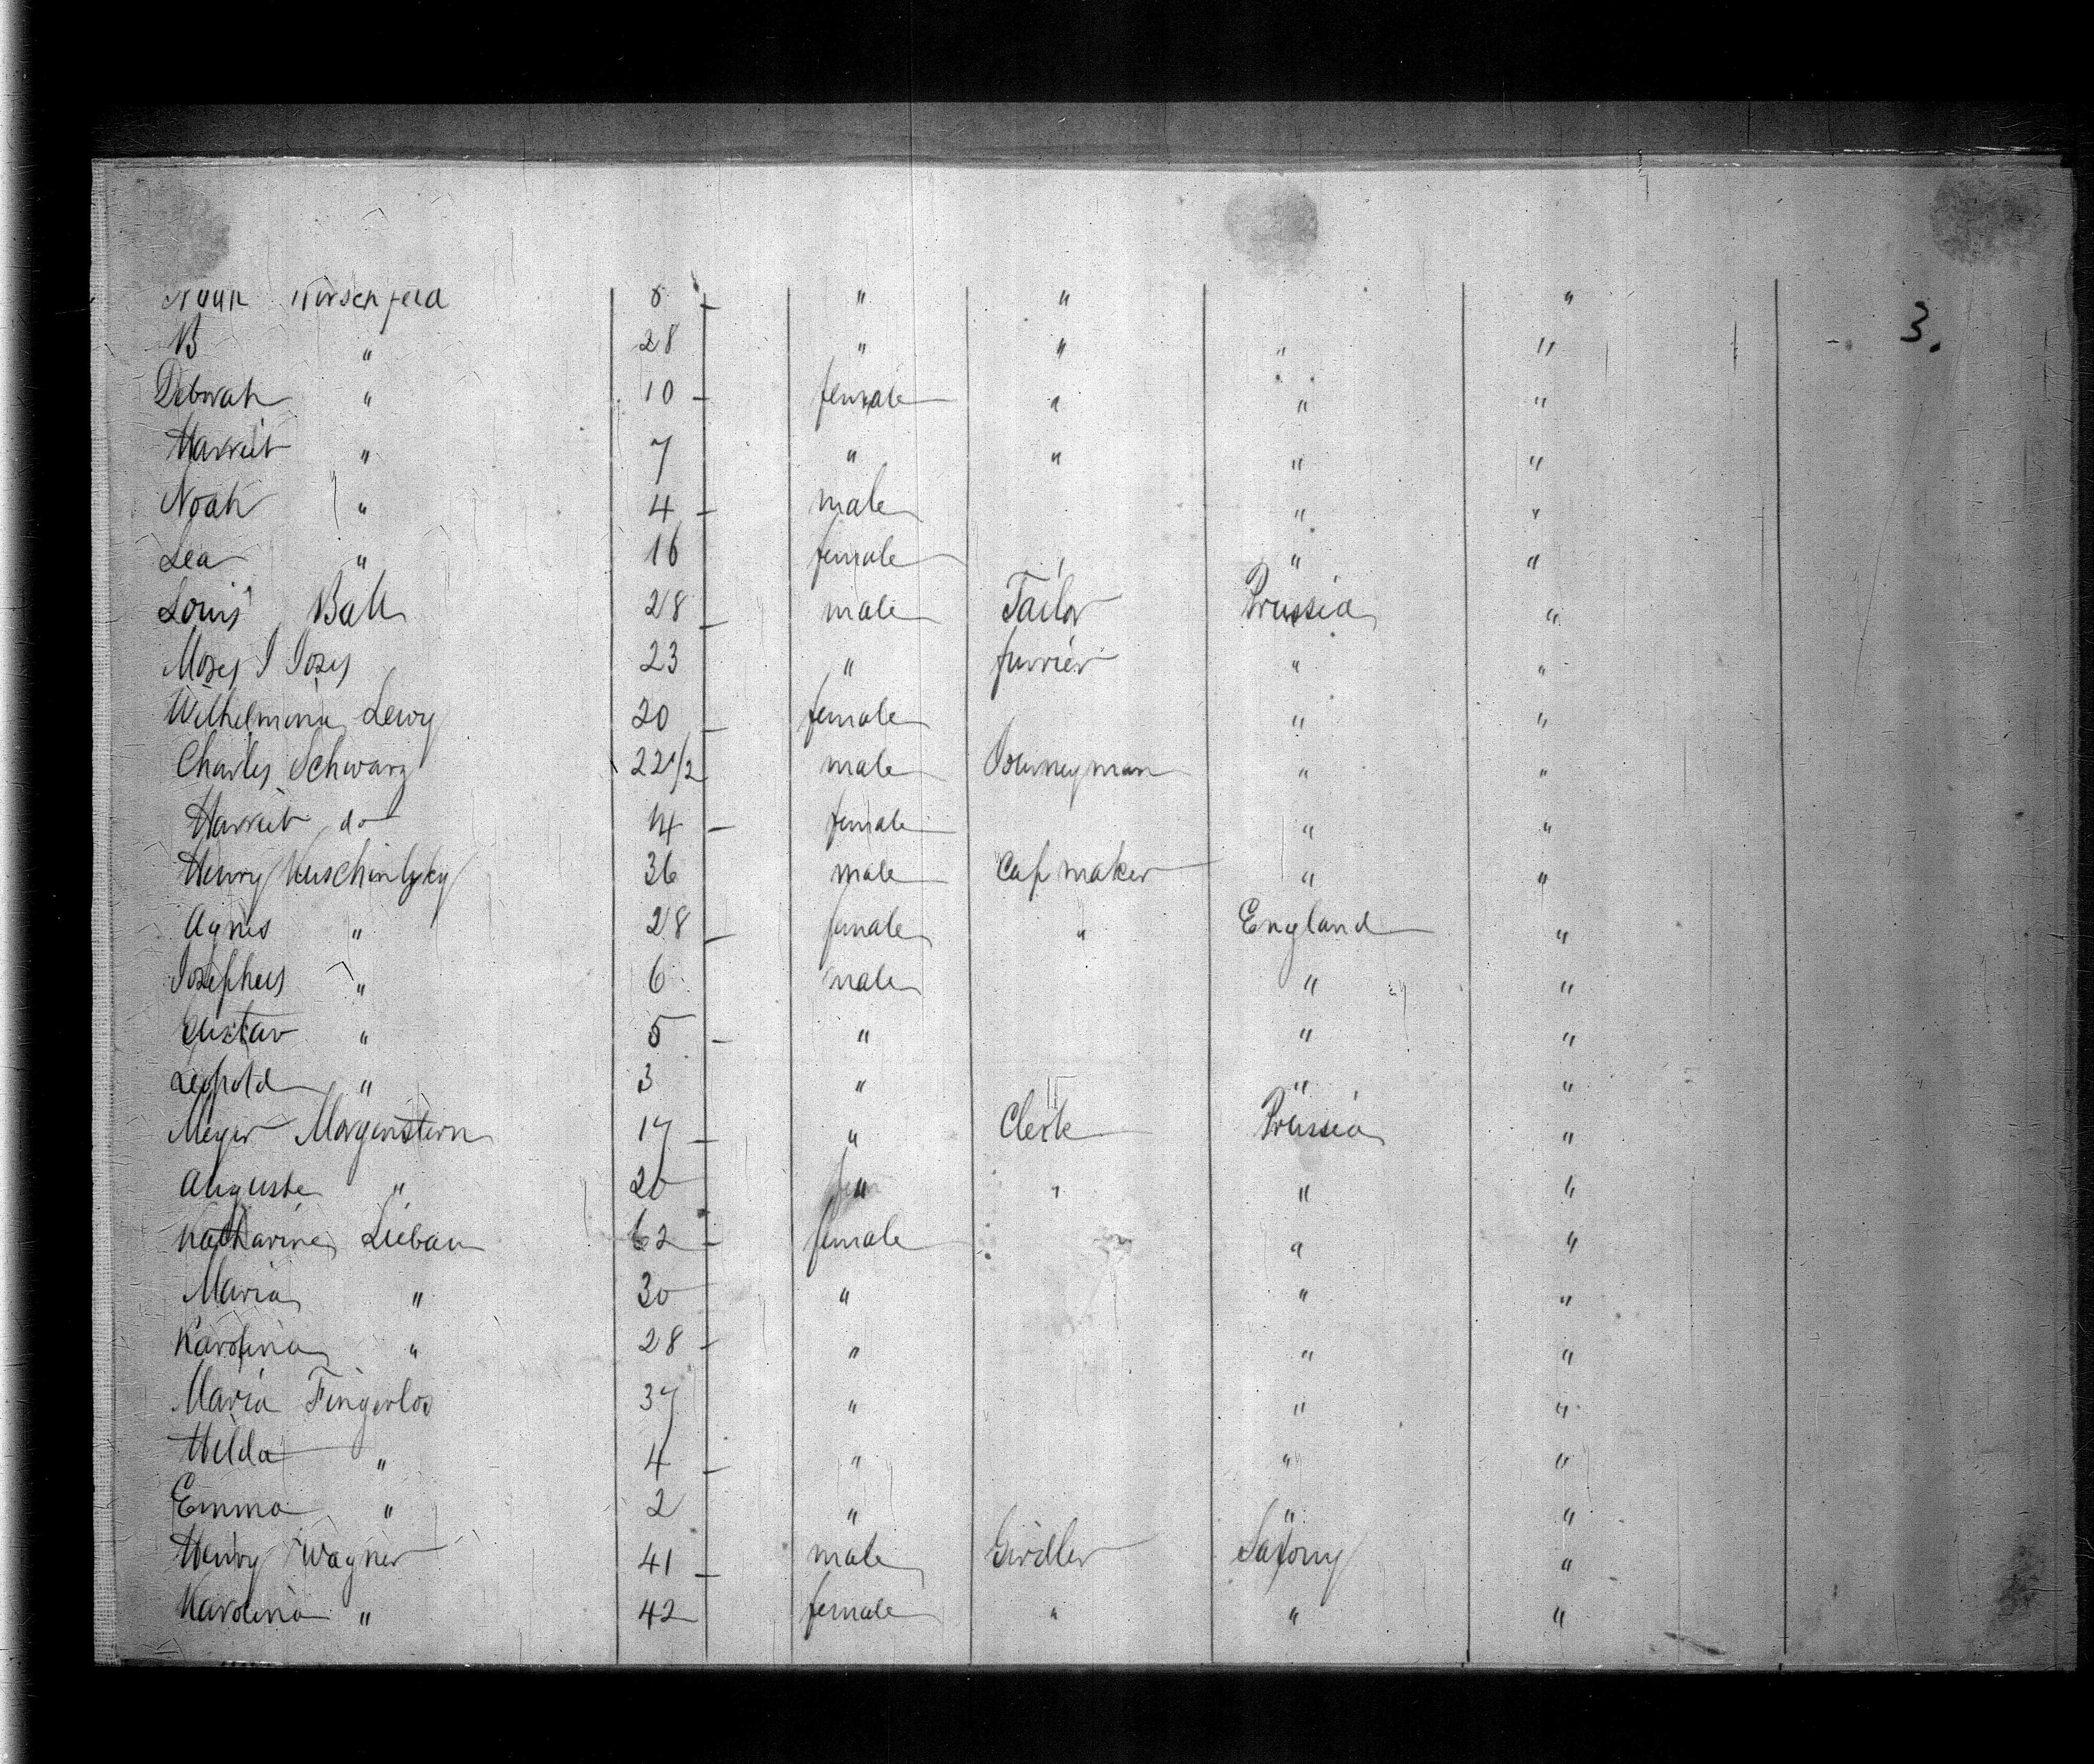 Hirschfeld " " "
3.
B " 28 " " " "
Deborah " 10 – female " " "
Harriet " 7 " " " "
Noah " 4 – male " "
Lea " 16 female " " "
Louis Ball 28 – male Tailor Prussia "
Moses J Joses 23 " furrier " "
Wilhelmina Lewy 20 – female " "
Charles Schwarz 22 1/2 male Journeyman " "
Harriet do 14 – female " "
Henry 36 male Cap maker " "
Agnes " 28 – female " England "
Josephus " 6 male " "
Gustav " 5 – " " "
Leopold " 3 " " "
Meyer Morgenstern 17 – " Clerk Prussia "
Auguste " 20 " " " "
Katharine Lieban 62 – female " "
Maria " 30 " " "
Karolina " 28 – " " "
Maria Fingerlos 37 " " "
Hilda " 4 – " " "
Emma " 2 " " "
Henry Wagner 41 – male Girdler Saxony "
Karolina " 42 female " " "